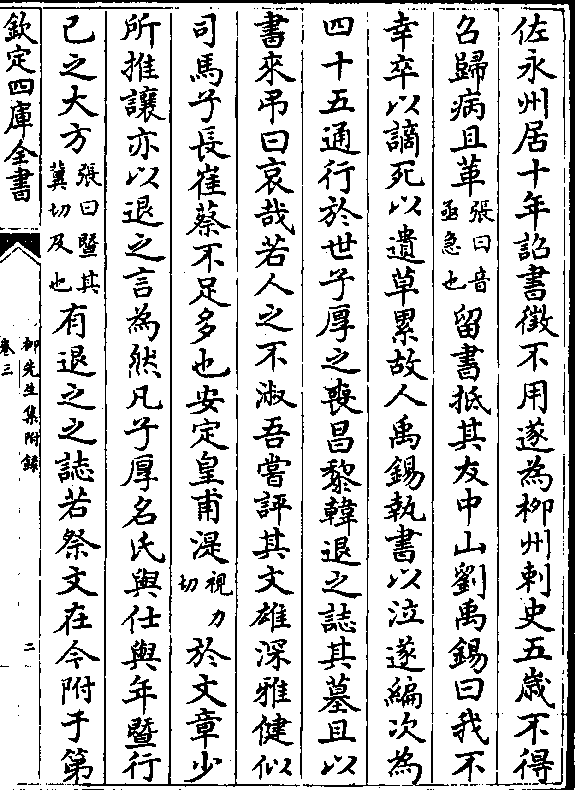 佐永州居十年詔書徵不用遂為柳州刺史五歲不得
召歸病且革張曰音亟急也留書抵其友中山劉禹錫曰我不
幸卒以謫死以遺草累故人禹錫執書以泣遂編次為
四十五通行於世子厚之喪昌黎韓退之誌其墓且以
書來吊曰哀哉若人之不淑吾嘗評其文雄深雅健似
司馬子長崔蔡不足多也安定皇甫湜視力切於文章少
所推讓亦以退之言為然凡子厚名氏與仕與年暨行
己之大方張曰暨其冀切及也有退之之誌若祭文在今附于第
欽定四庫全書
柳先生集附錄
卷三
二